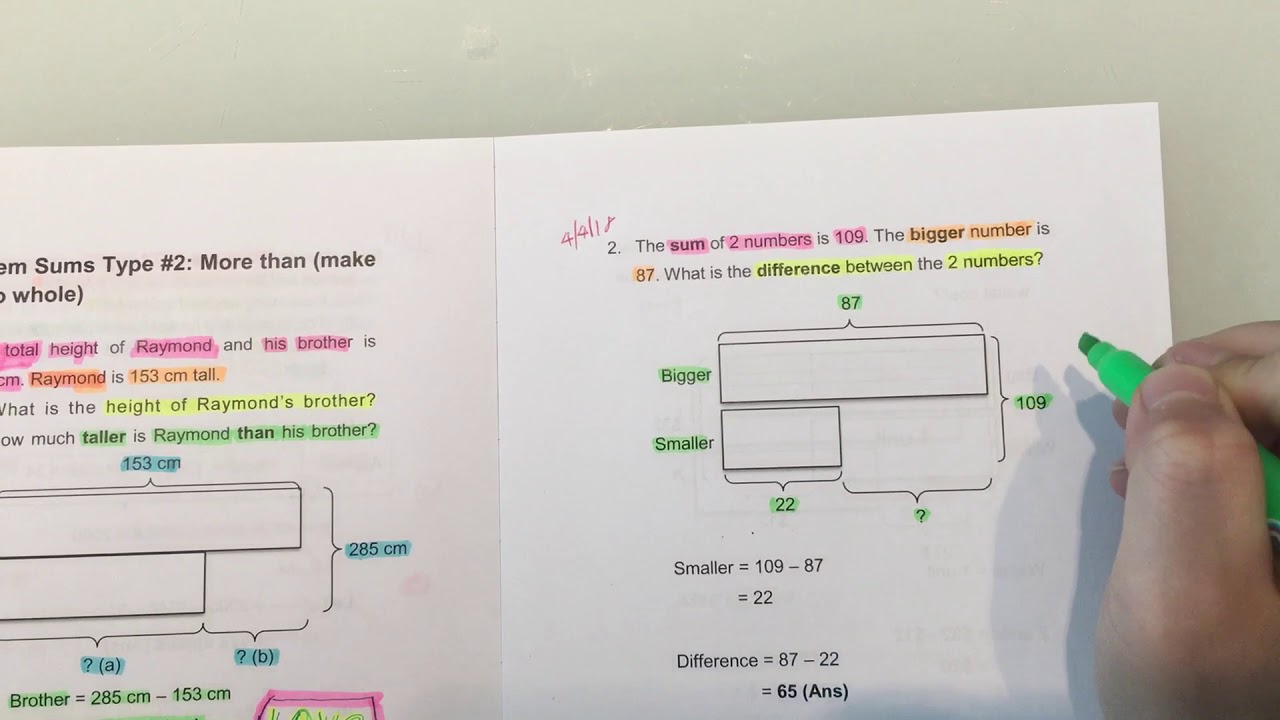 em Sums Type #2: More than (make
o whole)
total height of Raymond and his brother is
cm. Raymond is 153 cm tall.
What is the height of Raymond's brother?
ow much taller is Raymond than his brother?
153 cm
285 cm
? (a)
? (b)
Brother = 285 cm – 153 cm
4/4/18
2. The sum of 2 numbers is 109. The bigger number is
87. What is the difference between the 2 numbers?
87
Bigger
109
Smaller
22
?
Smaller = 109 – 87
= 22
Difference = 87 – 22
= 65 (Ans)